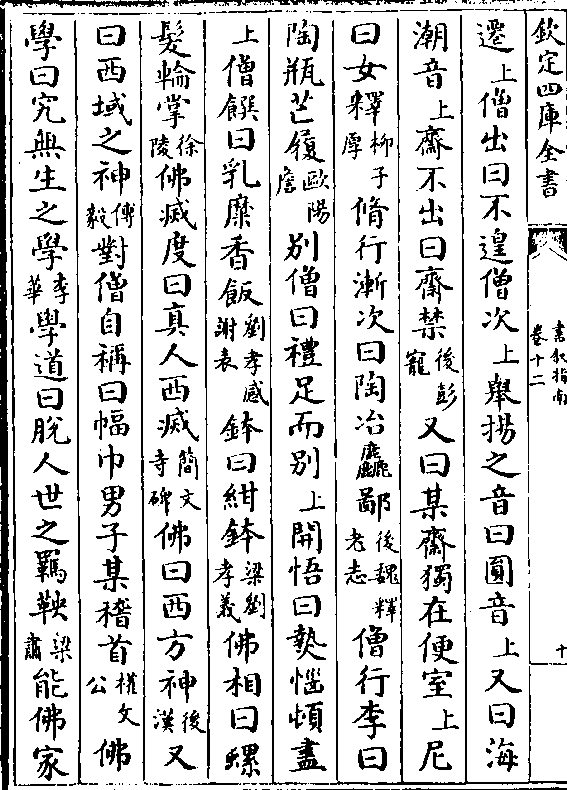 欽定四庫全書
書叙指南
卷十二
十
遷上僧出曰不遑僧次上舉揚之音曰圓音上又曰海
潮音上齋不出曰齋禁後彭寵又曰某齋獨在便室上尼
曰女釋柳子厚脩行漸次曰陶冶麤鄙後魏釋老志僧行李曰
陶瓶芒屨歐陽詹別僧曰禮足而別上開悟曰執惱頓盡
上僧饌曰乳糜香飯劉孝威謝表鉢曰紺鉢梁劉孝義佛相曰螺
髮輪掌徐陵佛滅度曰真人西滅簡文寺碑佛曰西方神後漢又
曰西域之神傅毅對僧自稱曰幅巾男子某稽首權文公佛
學曰究無生之學李華學道曰脫人世之羈鞅梁肅能佛家